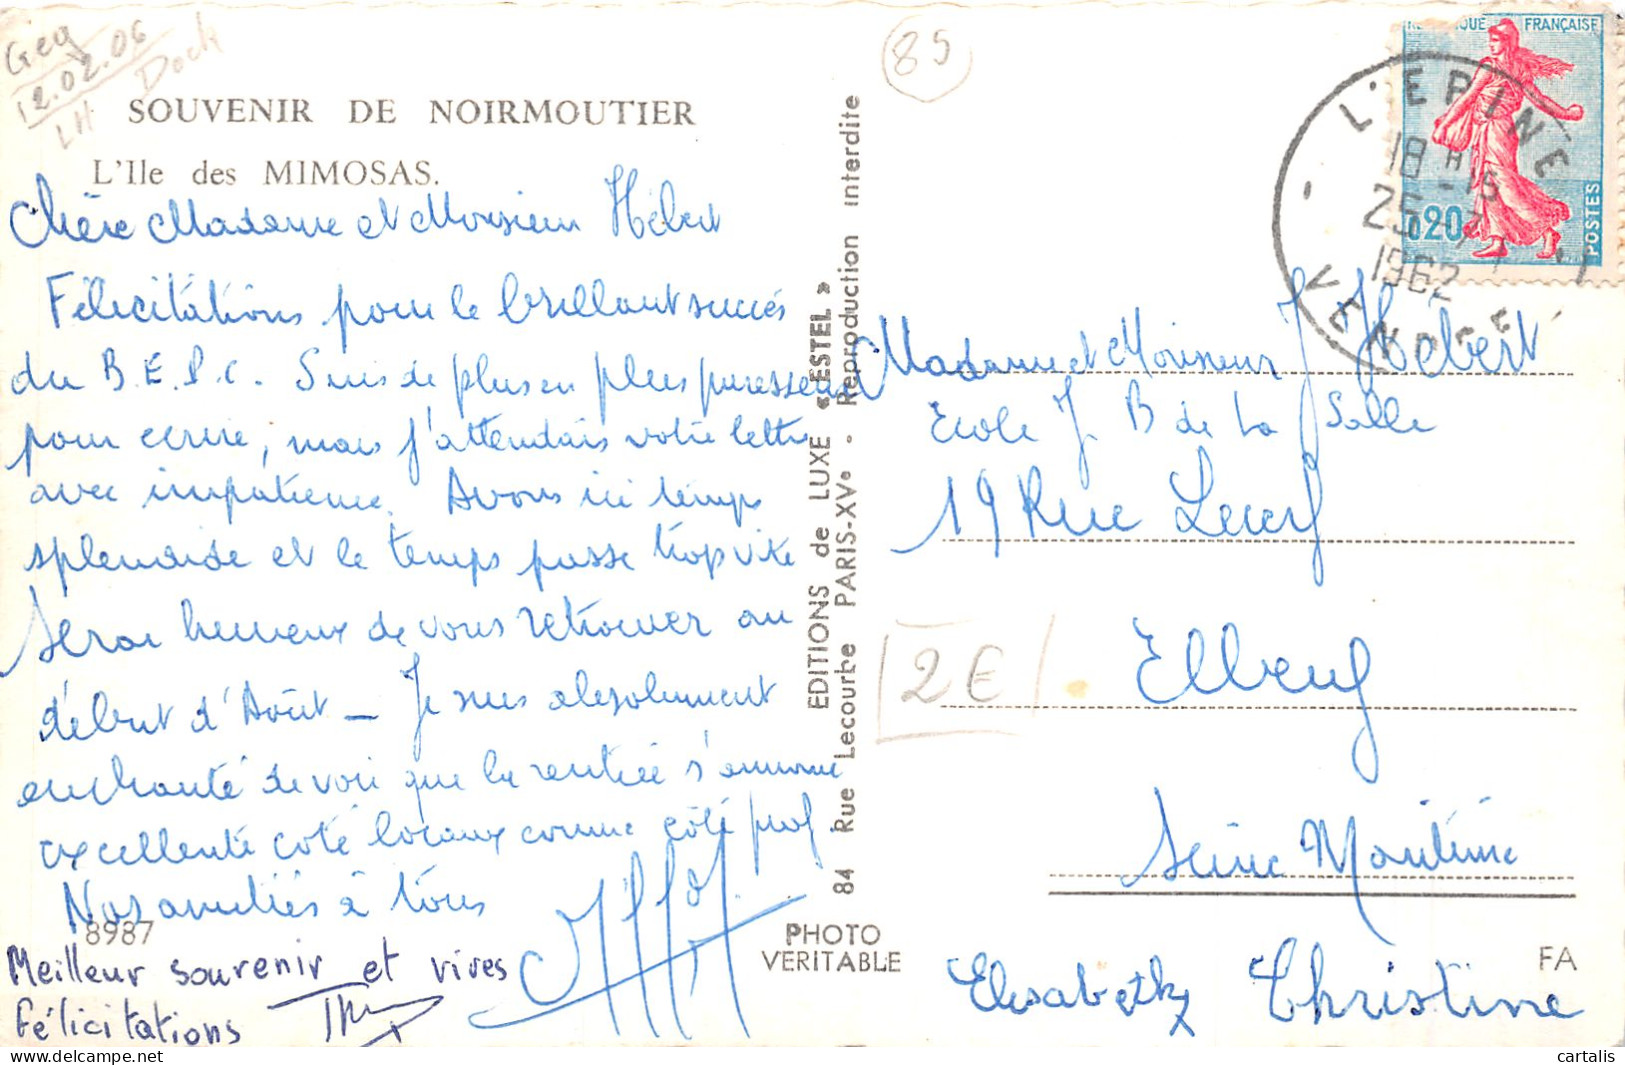 Geq
12.02.06
LH Dock
85
SOUVENIR DE NOIRMOUTIER
L'Ile des MIMOSAS.
Chère Madame et Monsieur Hébert
Félicitations pour le brillant succés
du B.E.P.C. Suis de plus en plus paresseuse
pour ecrire, mais j'attendais votre lettre
avec impatience. Avons ici temps
splendide et le temps passe trop vite
Serai heureux de vous retrouver au
début d'Août _ Je suis absolument
enchanté de voir que la rentrée s'annonce
excellente coté locaux comme côté prof.
Nos amitiés à tous
8987
Meilleur souvenir et vives
félicitations
EDITIONS de LUXE «ESTEL»
84 Rue Lecourbe PARIS-XVe - Reproduction interdite
PHOTO
VERITABLE
REPUBLIQUE FRANÇAISE
0,20
POSTES
L'EPINE
18 H 15
25 -7
1962
VENDEE
Madame et Monsieur J Hébert
Ecole J B de La Salle
19 Rue Lecerf
Elbeuf
Seine Maritime
2€
FA
Elisabeth Christine
cartalis